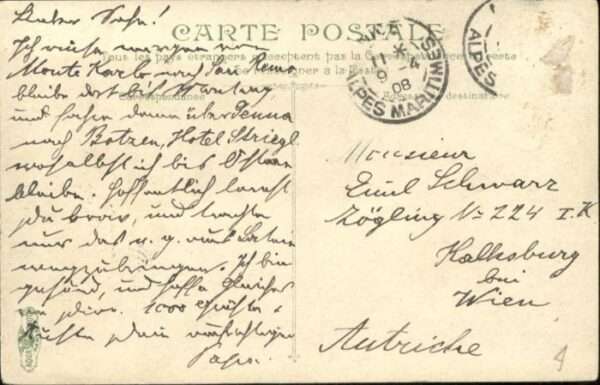 Lieber Sohn!
Ich reise morgen von
Monte Karlo nach San Remo
bleibe dort bis
und fahre dann über Genua
nach Botzen, Hotel Striegl
woselbst ich bis Ostern
bleibe. Hoffentlich lernst
du brav, und
nur das n. g. aus Latein
wegzubringen. Ich bin
gesund, und hoffe Gleiches
von dir. 1000 Grüße &
Küsse dein
Papa.
CARTE POSTALE
Tous les pays étrangers n'acceptent pas la Correspondance
Correspondance
Adresse du destinataire
ALPES MARITIMES
9
08
ALPES
Monsieur
Emil Schwarz
Zögling No 224 I. K
Kalksburg
bei
Wien
Autriche